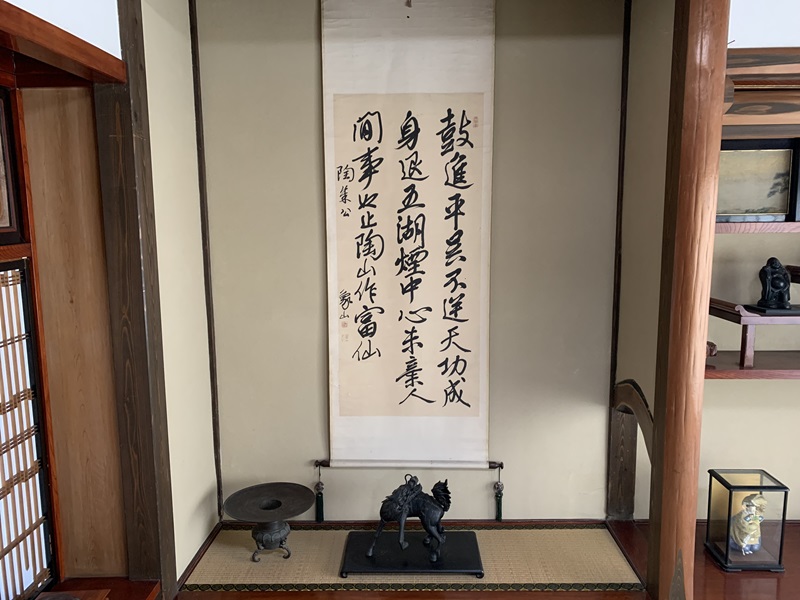 鼓進平呉不逆天功成
身退五湖煙中心未棄人
間事也止陶山作富仙
陶朱公
象山